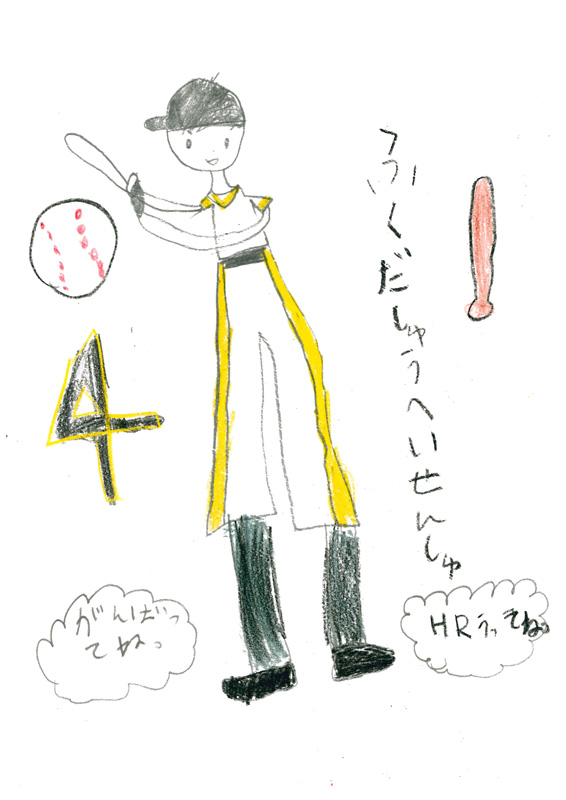 ふくだしゅうへいせんしゅ
4
がんばっ
てねっ
HRうってねっ